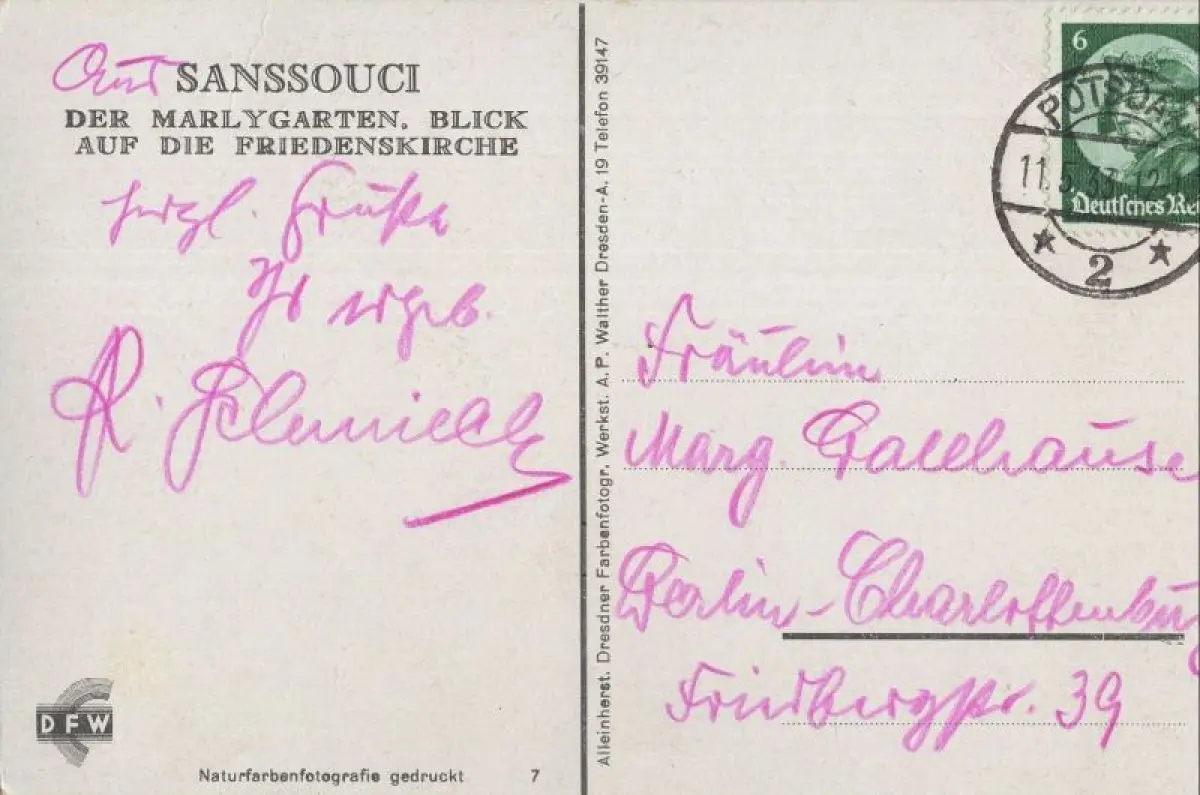 Aus SANSSOUCI
DER MARLYGARTEN. BLICK
AUF DIE FRIEDENSKIRCHE
herzl. Grüße
Ihr ergeb.
R.
DFW
Naturfarbenfotografie gedruckt 7
Alleinherst. Dresdner Farbenfotogr. Werkst. A. P. Walther Dresden-A. 19 Telefon 39147
6
Deutsches Rei
POTSDA
11.5.33.12
2
Fräulein
Marg.
Berlin-Charlottenburg
Friedbergstr. 39